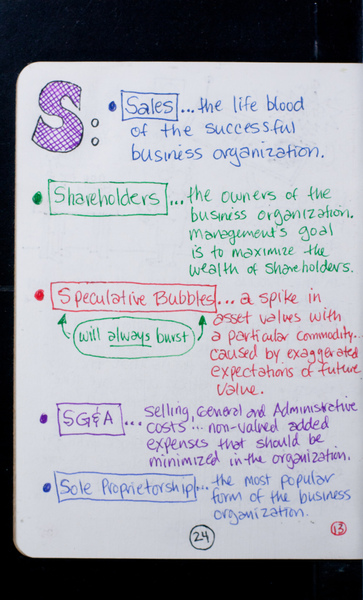 S:
• Sales ... the life blood
of the successful
business organization.
• Shareholders ... the owners of the
business organization.
management's goal
is to maximize the
wealth of shareholders.
• Speculative Bubbles ... a spike in
asset values with
a particular commodity...
caused by exaggerated
expectations of future
value.
will always burst
• SG&A ... Selling, General and Administrative
costs ... non-valued added
expenses that should be
minimized in the organization.
• Sole Proprietorship ... the most popular
form of the business
organization.
24
13